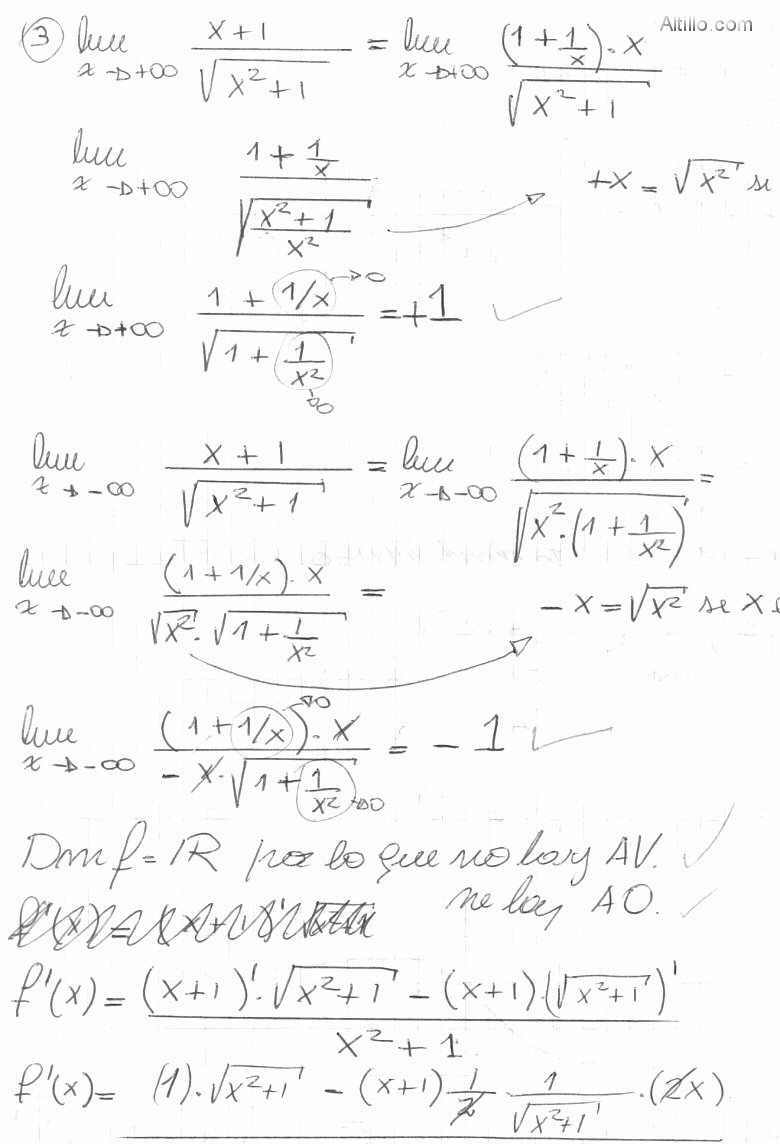 Altillo.com
③ lim x→+∞ (x+1)/√(x²+1) = lim x→+∞ ((1+1/x)·x)/√(x²+1)
lim x→+∞ (1+1/x)/√((x²+1)/x²) → +x = √(x²) si
lim x→+∞ (1+1/x→0)/√(1+1/x²→0) = +1 ✓
lim x→-∞ (x+1)/√(x²+1) = lim x→-∞ ((1+1/x)·x)/√(x²·(1+1/x²)) =
lim x→-∞ ((1+1/x)·x)/(√(x²)·√(1+1/x²)) = → -x = √(x²) si x
lim x→-∞ ((1+1/x→0)·x)/(-x·√(1+1/x²→0)) = -1 ✓
Dom f = IR por lo que no hay AV. ✓
no hay AO. ✓
f'(x) = ((x+1)'·√(x²+1) - (x+1)·(√(x²+1))')/(x²+1)
f'(x) = (1)·√(x²+1) - (x+1) 1/2 · 1/√(x²+1) · (2x)